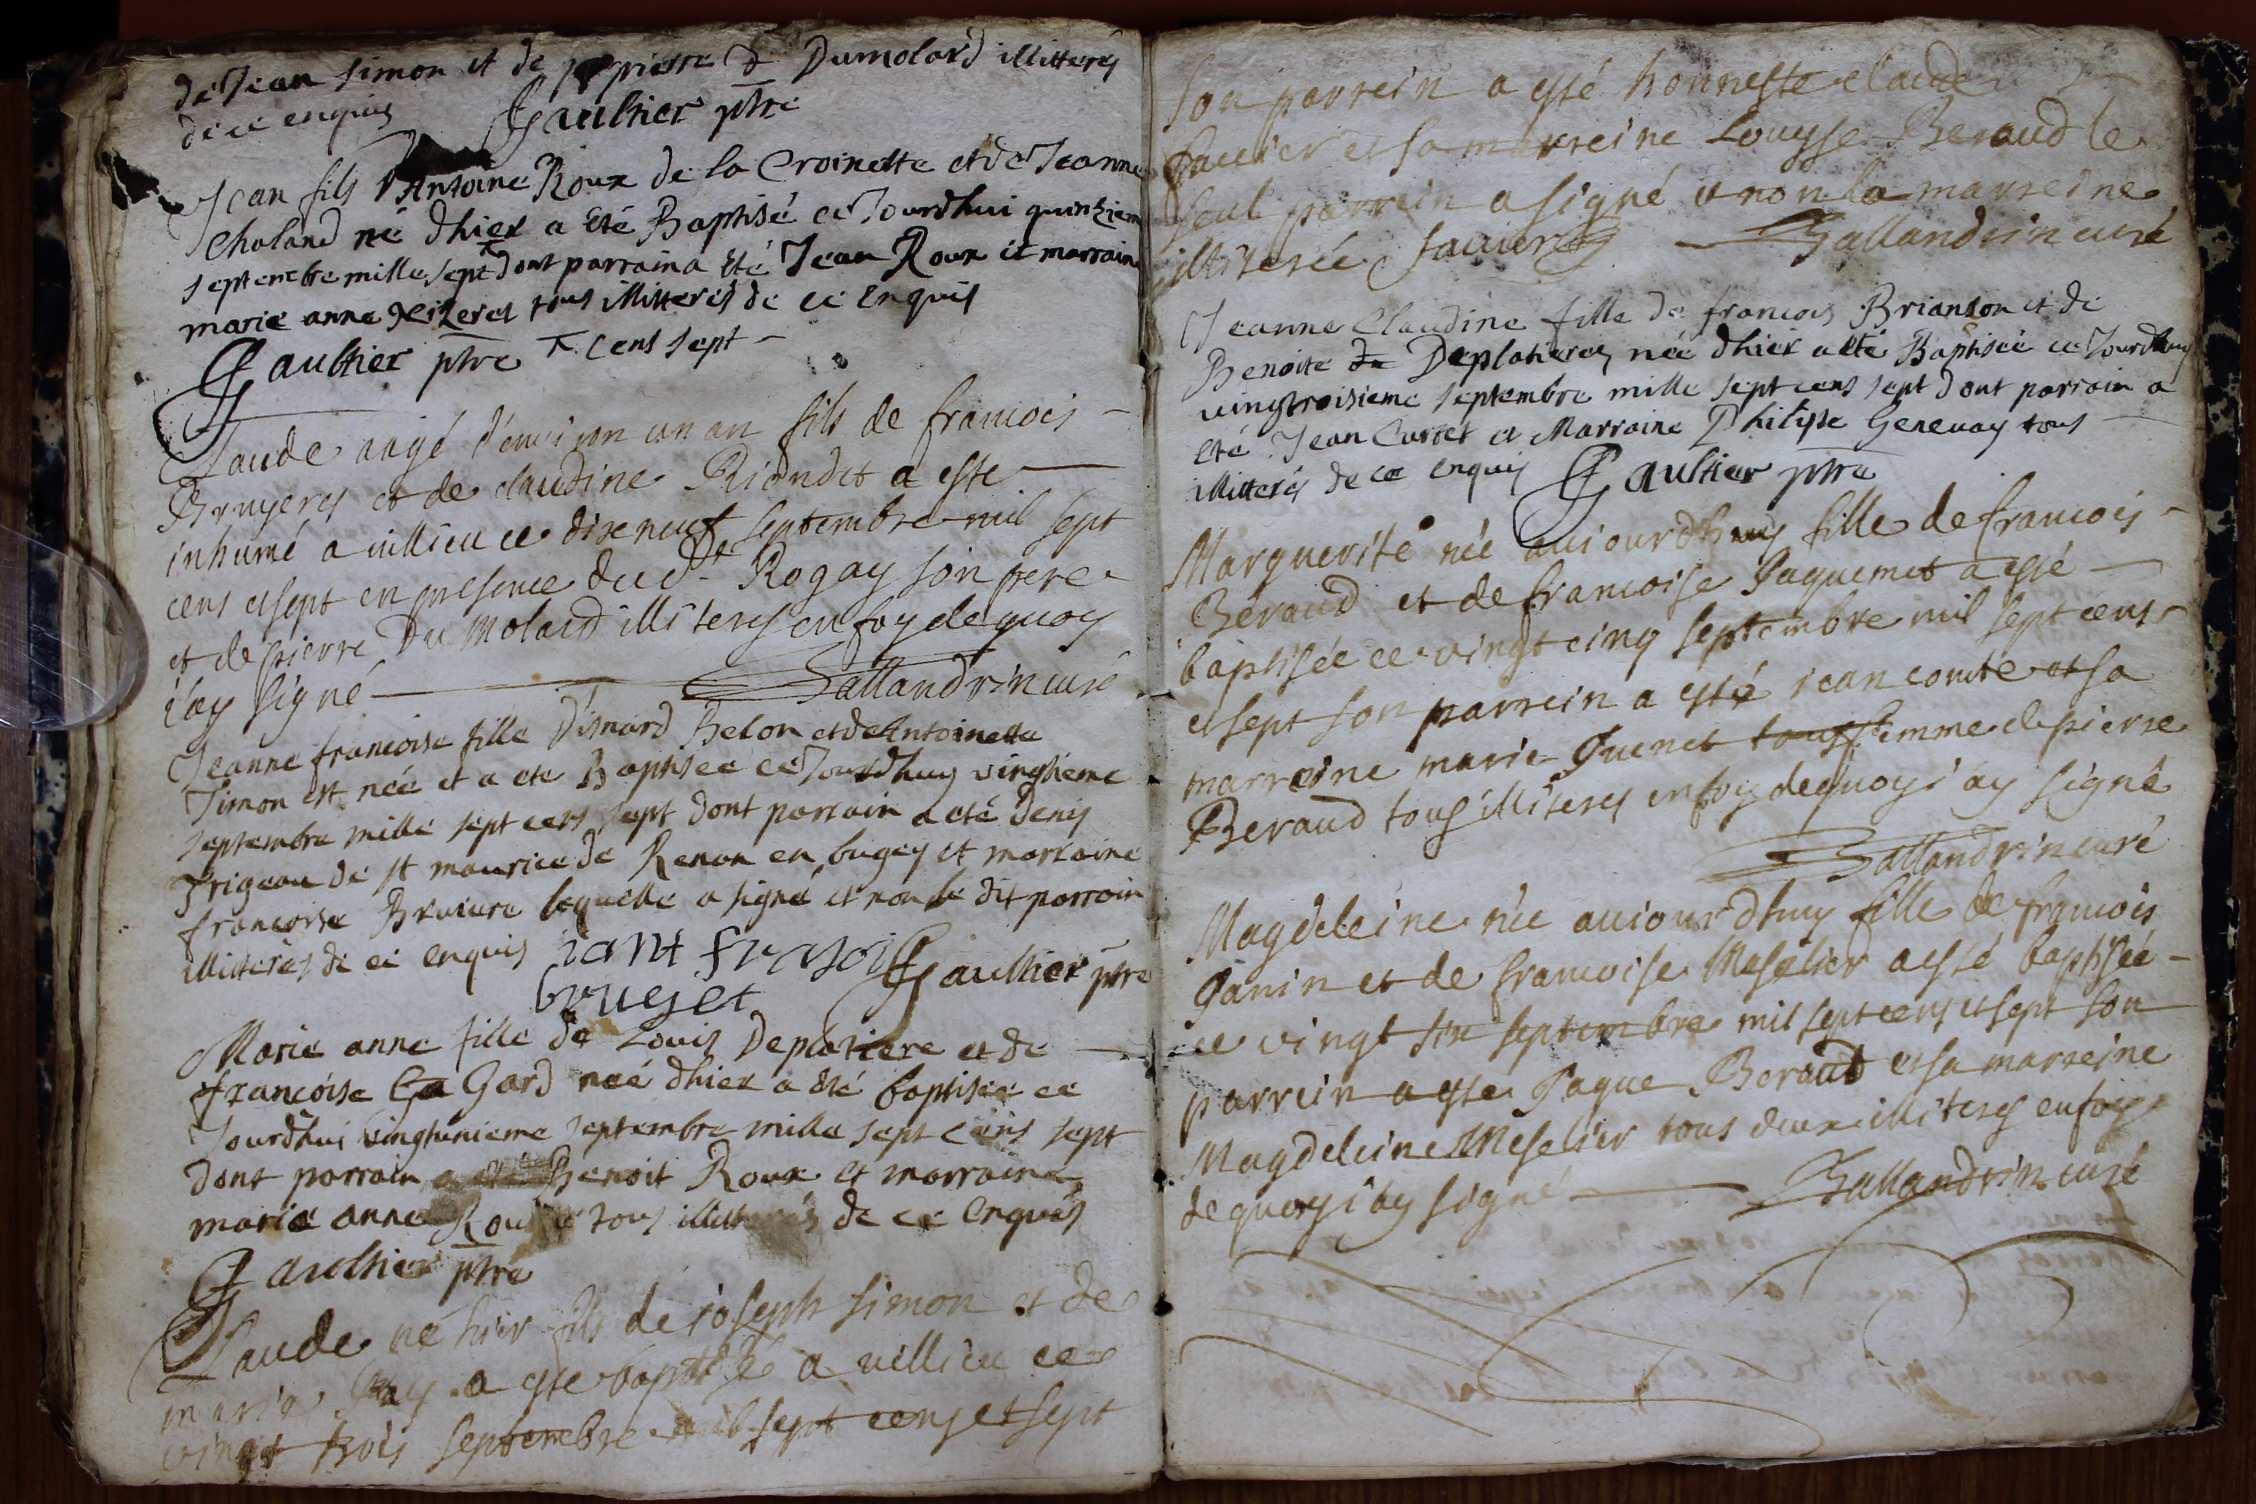 de Jean Simon et de pierre Dumolard illitterés
de ce enquis Gaultier ptre
Jean fils d'Antoine Roux de la Croinette et de Jeanne
Choland né dhier a Eté Baptisé ce Jourdhui quinzieme
septembre mille sept dont parrain a Eté Jean Roux et marraine
marie anne tous illitterés de ce Enquis
Gaultier ptre cens sept
Claude aagé d'environ un an fils de francois
Bruyeres et de claudine Riondet a esté
inhumé a villieu ce dixneuf septembre mil sept
cens et sept en presence dud. Rogay son pere
et de pierre Du molard illiteres en foy de quoy
i'ay signé Ballandrin curé
Jeanne francoise fille D'ismard Belon et de Antoinette
Simon est née et a eté Baptisée ce Jourdhuy vingtieme
septembre mille sept cens sept dont parrain a eté denis
Trigeau de st maurice de Remon en bugey et marraine
francoise Bruiere laquelle a signé et non le dit parrain
illitterés de ce enquis iant fransoi Gaultier ptre
bruget
Marie anne fille de Louis Deplatiere et de
francoise La Gard née dhier a été baptisée ce
Jourdhui vinghunieme septembre mille sept cens sept
dont parrain a eté Benoit Roux et marraine
marie anne tous illitterés de ce Enquis
Gaultier ptre
Claude né hier fils de ioseph simon et de
marie Ray a esté baptisé a villieu ce
vingt trois septembre mil sept cens et sept
son parrein a esté honneste claude
Sauvier et sa marreine Louyse Beraud le
seul parrein a signé et non la marreine
illiterée sauvier Ballandrin curé
Jeanne Claudine fille de francois Brianson et de
Benoite Deplatieres née dhier a eté Baptisée ce Jourdhuy
vingtroisieme septembre mille sept cens sept dont parrain a
eté Jean Curtet et Marraine Philipe Genevay tous
illitterés de ce enquis Gaultier ptre
Marguerite née auiourdhuy fille de francois
Béraud et de francoise Paquemet a esté
baptisée ce vingt cinq septembre mil sept cens
et sept son parrein a esté iean comte et sa
marreine marie Quenet femme de pierre
Beraud tous illiteres en foy de quoy i'ay signé
Ballandrin curé
Magdeleine née auiourdhuy fille de francois
Janin et de francoise Meselier a esté baptisée
ce vingt six septembre mil sept cens et sept son
parrein a esté Jaque Beraud et sa marreine
Magdeleine Meselier tous deux illiteres en foy
de quoy i'ay signé Ballandrin curé